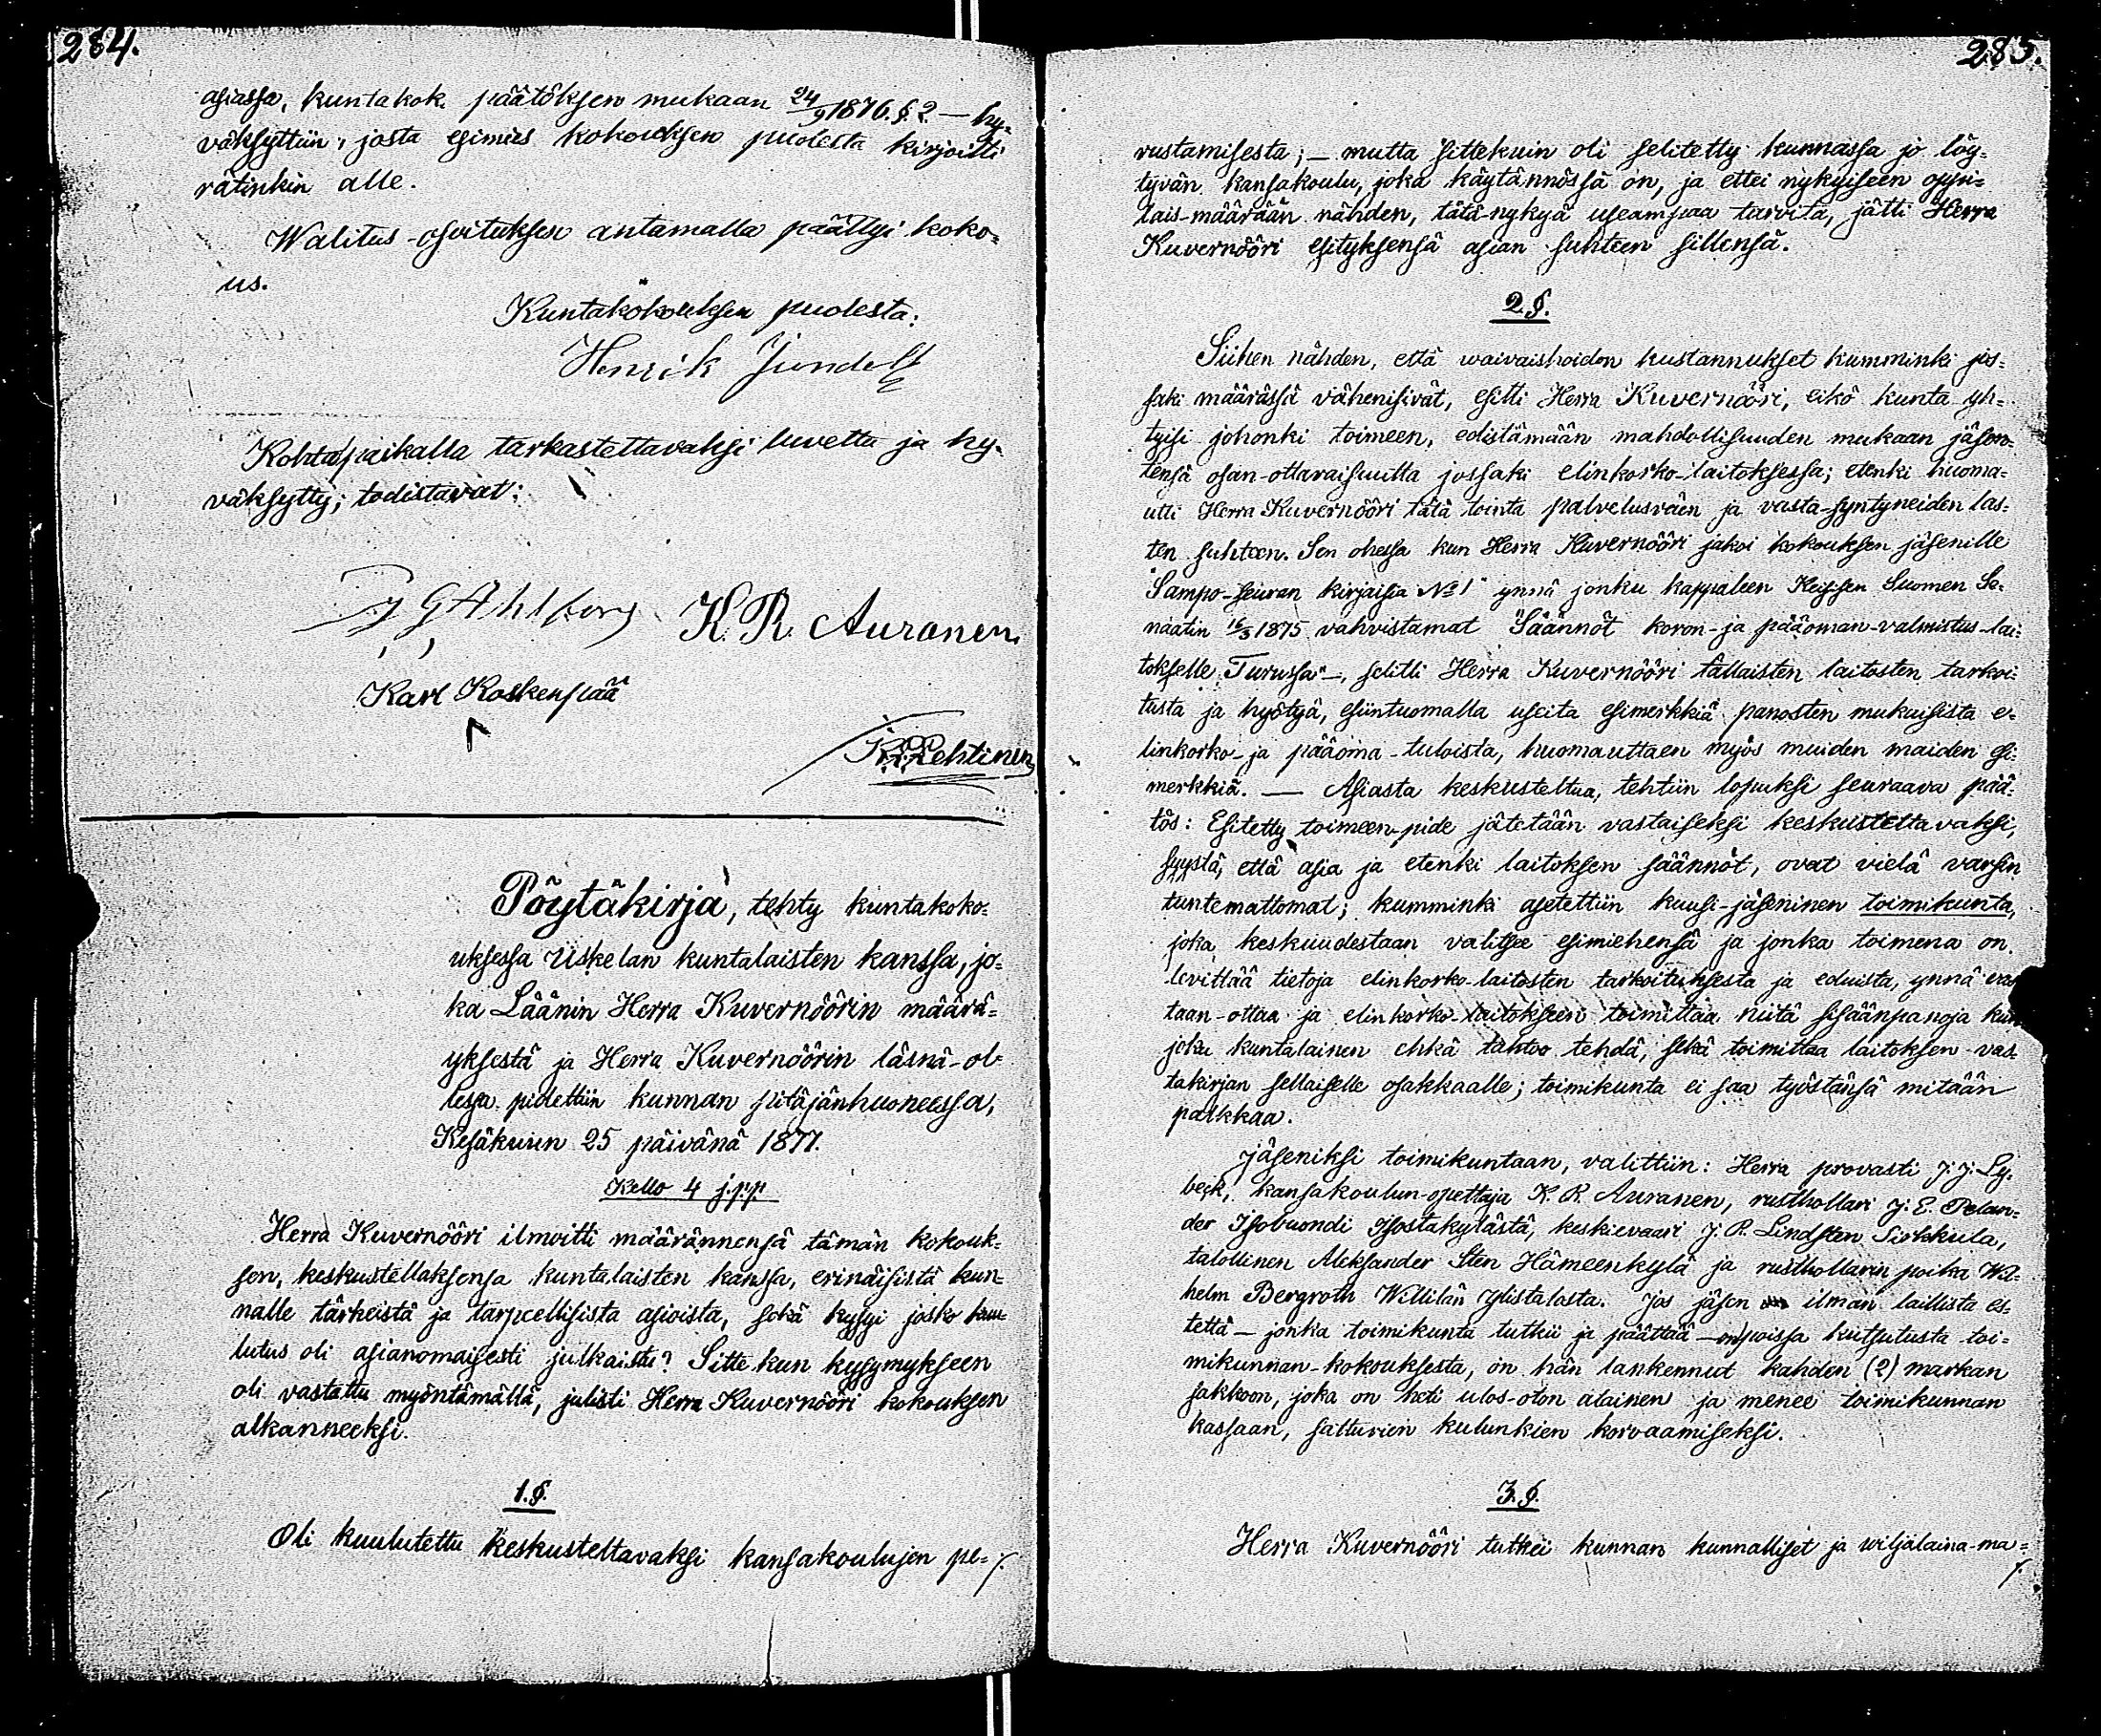 284.
asiassa, kuntakok. päätöksen mukaan 24/9 1876. §. 2 — hy-
väksyttiin; josta esimies kokouksen puolesta kirjoitti
rätinkin alle.
Walitus-osoituksen antamalla päättyi koko-
us.
Kuntakokouksen puolesta:
Henrik Jundelf
Kohtapaikalla tarkastettavaksi luvettu ja hy-
väksytty; todistavat:
J G Ahlforss K. R. Auranen.
Karl Koskenpää
Lehtinen
Pöytäkirja, tehty kuntakoko-
uksessa Uskelan kuntalaisten kanssa, jo-
ka Läänin Herra Kuvernöörin määrä-
yksestä ja Herra Kuvernöörin läsnä-ol-
lessa pidettiin kunnan pitäjänhuoneessa,
Kesäkuun 25 päivänä 1877.
Kello 4 j.p.p.
Herra Kuvernööri ilmoitti määränneensä tämän kokouk-
sen, keskustellaksensa kuntalaisten kanssa, erinäisistä kun-
nalle tärkeistä ja tarpeellisista asioista, sekä kysyi josko kuu-
lutus oli asianomaisesti julkaistu? Sitte kun kysymykseen
oli vastattu myöntämällä, julisti Herra Kuvernööri kokouksen
alkanneeksi.
1.§.
Oli kuulutettu keskusteltavaksi kansakoulujen pe-/.
285.
rustamisesta; — mutta sittekuin oli selitetty kunnassa jo löy-
tyvän kansakoulu, joka käytännössä on, ja ettei nykyiseen oppi-
lais-määrään nähden, tätä-nykyä useampaa tarvita, jätti Herra
Kuvernööri esityksensä asian suhteen sillensä.
2.§.
Siihen nähden, että waivaishoidon kustannukset kumminki jos-
saki määrässä vähenisivät, esitti Herra Kuvernööri, eikö kunta yh-
tyisi johonki toimeen, edistämään mahdollisuuden mukaan jäsen-
tensä osan-ottavaisuutta jossaki elinkorko-laitoksessa; etenki huoma-
utti Herra Kuvernööri tätä tointa palvelusväen ja vasta-syntyneiden las-
ten suhteen. Sen ohessa kun Herra Kuvernööri jakoi kokouksen jäsenille
"Sampo-seuran kirjaisia No 1" ynnä jonku kappaleen Keis:sen Suomen Se-
naatin 16/3 1875 vahvistamat "Säännöt koron- ja pääoman-valmistus-lai-
tokselle Turussa" —, selitti Herra Kuvernööri tällaisten laitosten tarkoi-
tusta ja hyötyä, esiintuomalla useita esimerkkiä panosten mukaisista e-
linkorko- ja pääoma-tuloista, huomauttaen myös muiden maiden esi-
merkkiä. — Asiasta keskusteltua, tehtiin lopuksi seuraava pää-
tös: Esitetty toimeen-pide jätetään vastaiseksi keskusteltavaksi,
syystä, että asia ja etenki laitoksen säännöt, ovat vielä varsin
tuntemattomat; kumminki asetettiin kuusi-jäseninen toimikunta,
joka keskuudestaan valitsee esimiehensä ja jonka toimena on
levittää tietoja elinkorko-laitosten tarkoituksesta ja eduista, ynnä vas
taan-ottaa ja elinkorko-laitokseen toimittaa niitä sisäänpanoja kun
joku kuntalainen ehkä tahtoo tehdä, sekä toimittaa laitoksen vas-
takirjan sellaiselle osakkaalle; toimikunta ei saa työstänsä mitään
palkkaa.
Jäseniksi toimikuntaan, valittiin: Herra provasti J. J. Ly-
beck, kansakoulun-opettaja K. R. Auranen, rusthollari J. E. Pelan-
der Isobuondi Isostakylästä, keskievaari J. R. Lindsten Sirkkula,
talollinen Aleksander Sten Hämeenkylä ja rusthollarin poika Wil-
helm Bergroth Willilän Ylistalosta. Jos jäsen ilman laillista es-
tettä — jonka toimikunta tutkii ja päättää — on poissa kutsutusta toi-
mikunnan-kokouksesta, on hän lankennut kahden (2) markan
sakkoon, joka on heti ulos-oton alainen ja menee toimikunnan
kassaan, sattuvien kulunkien korvaamiseksi.
3.§.
Herra Kuvernööri tutkei kunnan kunnalliset ja wiljalaina-ma-
/.